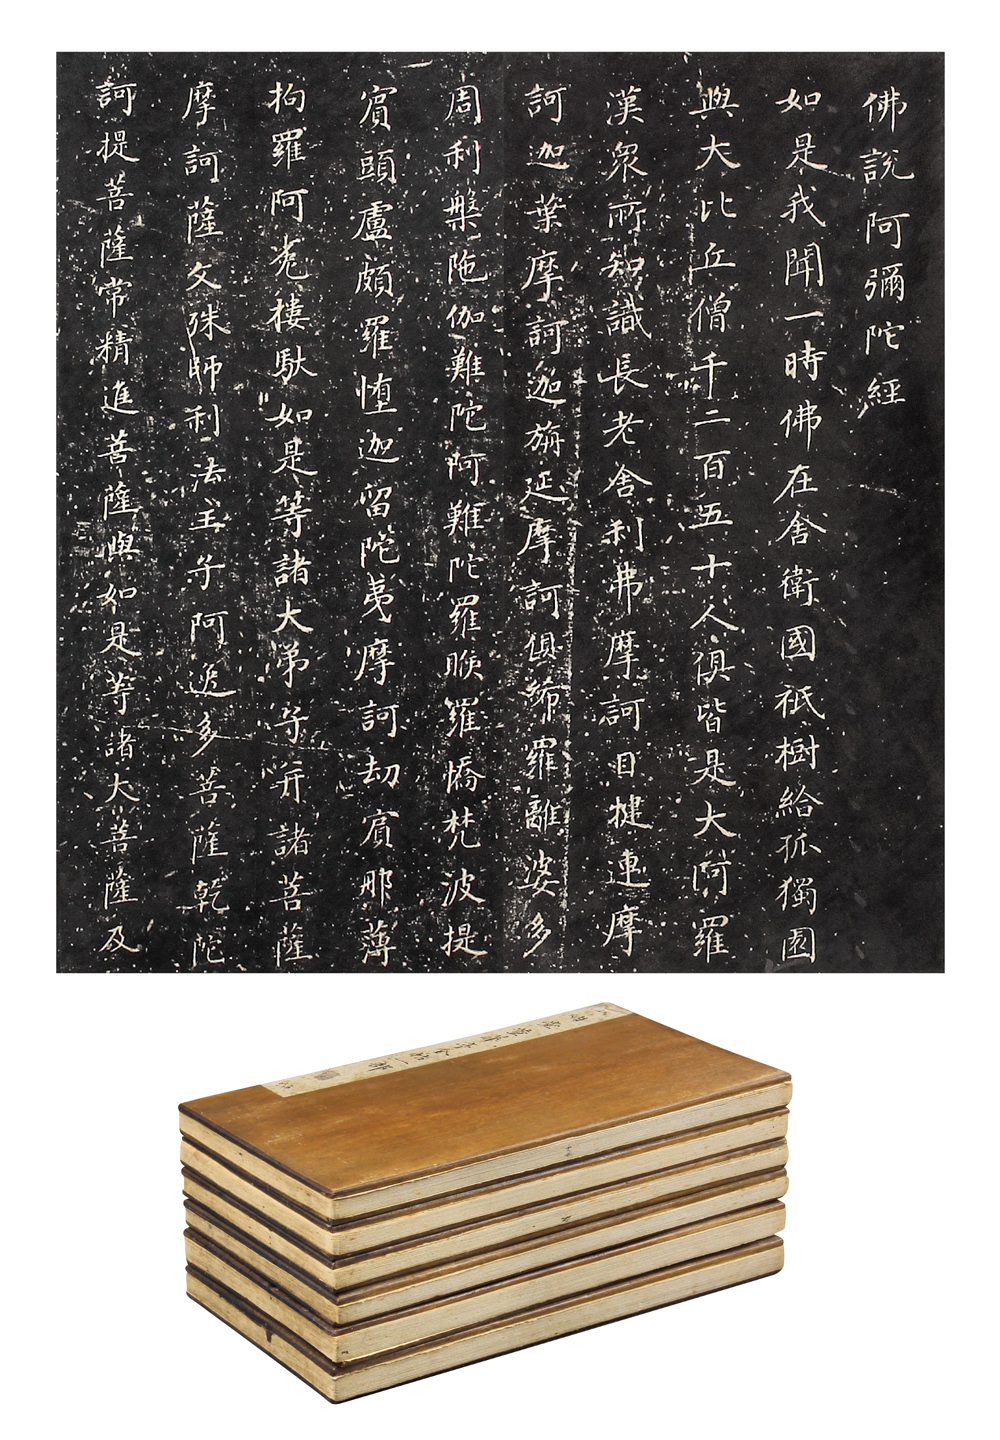 佛說阿彌陀經
如是我聞一時佛在舍衛國祇樹給孤獨園
與大比丘僧千二百五十人俱皆是大阿羅
漢衆所知識長老舍利弗摩訶目揵連摩
訶迦葉摩訶迦旃延摩訶俱絺羅離婆多
周利槃陁伽難陀阿難陀羅睺羅憍梵波提
賓頭盧頗羅墮迦留陀夷摩訶劫賓那薄
拘羅阿㝹樓馱如是等諸大弟子并諸菩薩
摩訶薩文殊師利法王子阿逸多菩薩乾陀
訶提菩薩常精進菩薩與如是等諸大菩薩及